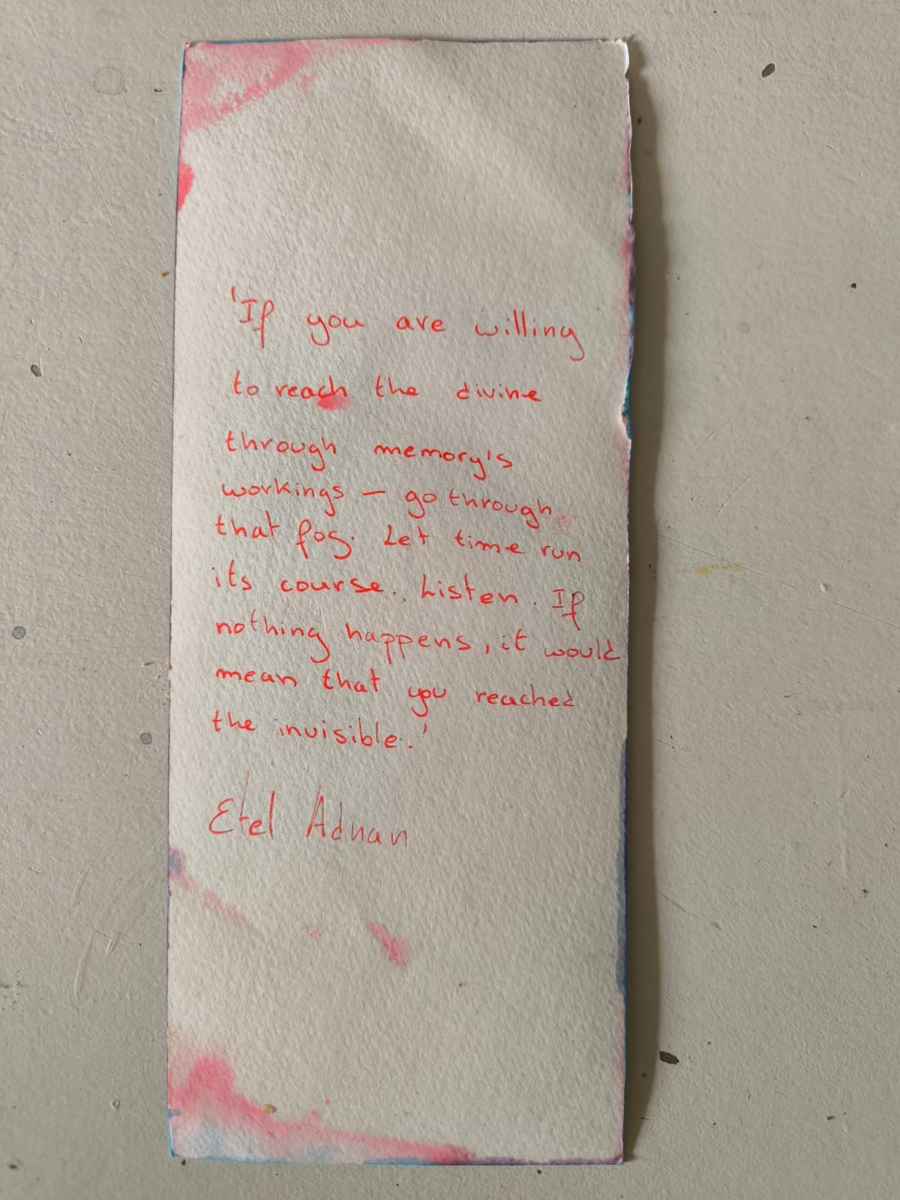 'If you are willing
to reach the divine
through memory's
workings – go through
that fog. Let time run
its course.. Listen. If
nothing happens, it would
mean that you reached
the invisible.'
Etel Adnan